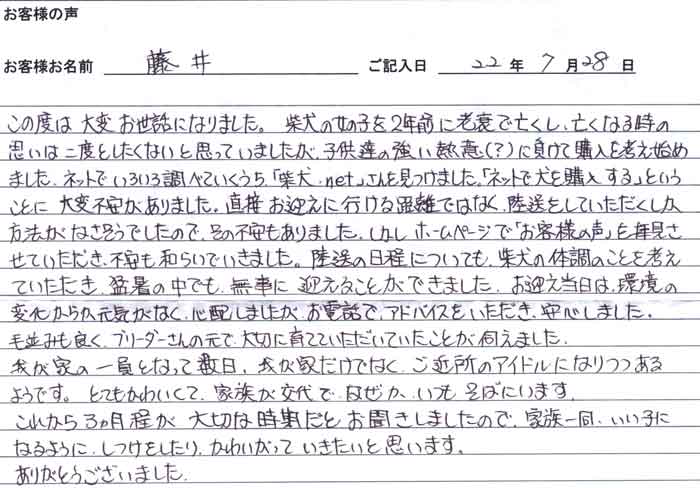 お客様の声
お客様お名前 藤井 ご記入日 22年7月28日
この度は大変お世話になりました。柴犬の女の子を2年前に老衰で亡くし、亡くなる時の
思いは二度としたくないと思っていましたが、子供達の強い熱意(?)に負けて購入を考え始め
ました。ネットでいろいろ調べていくうち「柴犬.net」さんを見つけました。「ネットで犬を購入する」という
ことに大変不安がありました。直接お迎えに行ける距離ではなく、陸送をしていただくしか
方法がなさそうでしたので、その不安もありました。しかしホームページで「お客様の声」を拝見さ
せていただき、不安も和らいでいきました。陸送の日程についても、柴犬の体調のことを考え
ていただき、猛暑の中でも、無事に迎えることができました。お迎え当日は、環境の
変化からか、元気がなく、心配しましたが、お電話で、アドバイスをいただき、安心しました。
毛並みも良く、ブリーダーさんの元で、大切に育てていただいていたことが伺えました。
我が家の一員となって数日、我が家だけでなく、ご近所のアイドルになりつつある
ようです。とてもかわいくて、家族が交代で、なぜか、いつもそばにいます。
これから3ヵ月程が大切な時期だとお聞きしましたので、家族一同、いい子に
なるように、しつけをしたり、かわいがっていきたいと思います。
ありがとうございました。